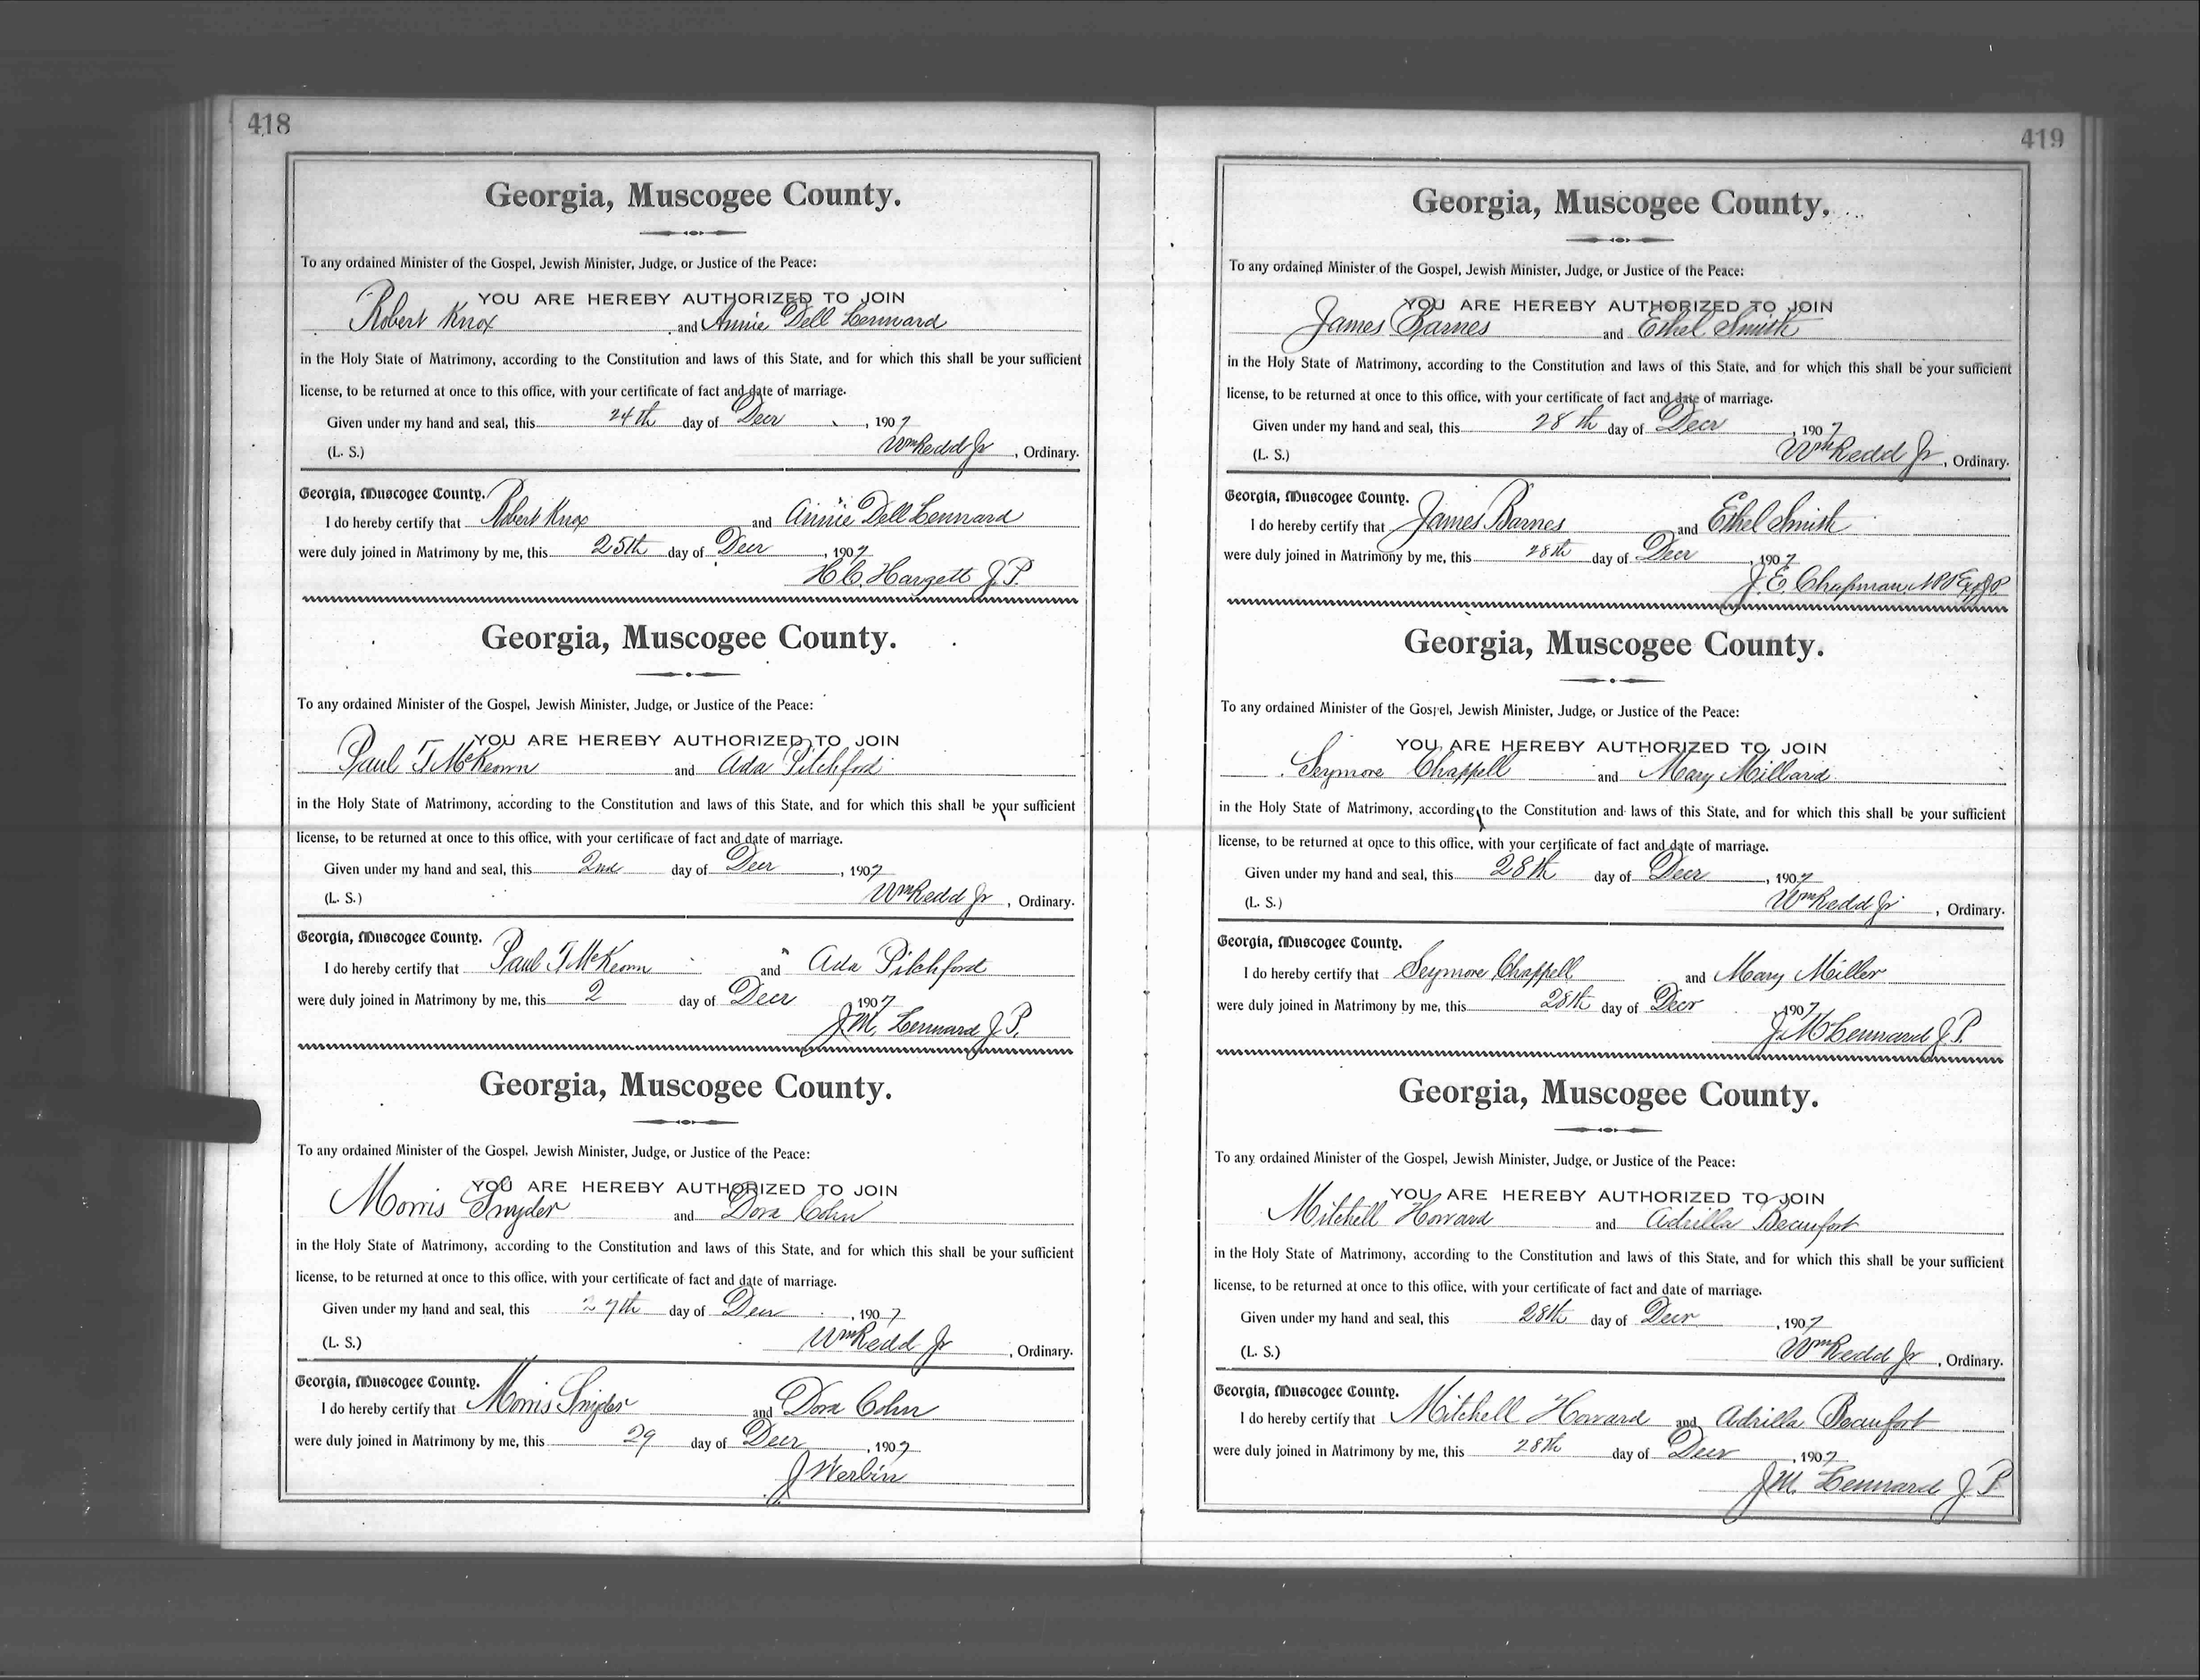 418
Georgia, Muscogee County.
To any ordained Minister of the Gospel, Jewish Minister, Judge, or Justice of the Peace:
YOU ARE HEREBY AUTHORIZED TO JOIN
Robert Knox and Annie Dell Lennard
in the Holy State of Matrimony, according to the Constitution and laws of this State, and for which this shall be your sufficient
license, to be returned at once to this office, with your certificate of fact and date of marriage.
Given under my hand and seal, this 24th day of Decr, 1907
(L. S.) Wm Redd Jr, Ordinary.
Georgia, Muscogee County.
I do hereby certify that Robert Knox and Annie Dell Lennard
were duly joined in Matrimony by me, this 25th day of Decr, 1907
H. C. Hargett J. P.
Georgia, Muscogee County.
To any ordained Minister of the Gospel, Jewish Minister, Judge, or Justice of the Peace:
YOU ARE HEREBY AUTHORIZED TO JOIN
Paul T McKeown and Ada Pitchford
in the Holy State of Matrimony, according to the Constitution and laws of this State, and for which this shall be your sufficient
license, to be returned at once to this office, with your certificate of fact and date of marriage.
Given under my hand and seal, this 2nd day of Decr, 1907
(L. S.) Wm Redd Jr, Ordinary.
Georgia, Muscogee County.
I do hereby certify that Paul T McKeown and Ada Pitchford
were duly joined in Matrimony by me, this 2 day of Decr 1907
J. M. Lennard J. P.
Georgia, Muscogee County.
To any ordained Minister of the Gospel, Jewish Minister, Judge, or Justice of the Peace:
YOU ARE HEREBY AUTHORIZED TO JOIN
Morris Snyder and Dora Cohn
in the Holy State of Matrimony, according to the Constitution and laws of this State, and for which this shall be your sufficient
license, to be returned at once to this office, with your certificate of fact and date of marriage.
Given under my hand and seal, this 27th day of Decr, 1907
(L. S.) Wm Redd Jr, Ordinary.
Georgia, Muscogee County.
I do hereby certify that Morris Snyder and Dora Cohn
were duly joined in Matrimony by me, this 29 day of Decr, 1907
J Werbin
419
Georgia, Muscogee County.
To any ordained Minister of the Gospel, Jewish Minister, Judge, or Justice of the Peace:
YOU ARE HEREBY AUTHORIZED TO JOIN
James Barnes and Ethel Smith
in the Holy State of Matrimony, according to the Constitution and laws of this State, and for which this shall be your sufficient
license, to be returned at once to this office, with your certificate of fact and date of marriage.
Given under my hand and seal, this 28th day of Decr, 1907
(L. S.) Wm Redd Jr, Ordinary.
Georgia, Muscogee County.
I do hereby certify that James Barnes and Ethel Smith
were duly joined in Matrimony by me, this 28th day of Decr, 1907
J. E. Chapman
Georgia, Muscogee County.
To any ordained Minister of the Gospel, Jewish Minister, Judge, or Justice of the Peace:
YOU ARE HEREBY AUTHORIZED TO JOIN
Seymore Chappell and Mary Millard
in the Holy State of Matrimony, according to the Constitution and laws of this State, and for which this shall be your sufficient
license, to be returned at once to this office, with your certificate of fact and date of marriage.
Given under my hand and seal, this 28th day of Decr, 1907
(L. S.) Wm Redd Jr, Ordinary.
Georgia, Muscogee County.
I do hereby certify that Seymore Chappell and Mary Miller
were duly joined in Matrimony by me, this 28th day of Decr, 1907
J. M Lennard J. P.
Georgia, Muscogee County.
To any ordained Minister of the Gospel, Jewish Minister, Judge, or Justice of the Peace:
YOU ARE HEREBY AUTHORIZED TO JOIN
Mitchell Howard and Adrilla Beaufort
in the Holy State of Matrimony, according to the Constitution and laws of this State, and for which this shall be your sufficient
license, to be returned at once to this office, with your certificate of fact and date of marriage.
Given under my hand and seal, this 28th day of Decr, 1907
(L. S.) Wm Redd Jr, Ordinary.
Georgia, Muscogee County.
I do hereby certify that Mitchell Howard and Adrilla Beaufort
were duly joined in Matrimony by me, this 28th day of Decr, 1907
J. M. Lennard J. P.